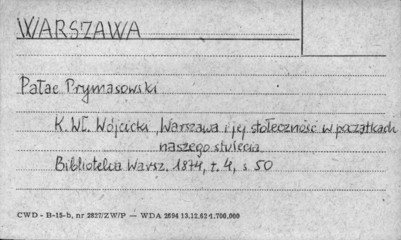 WARSZAWA
Pałac Prymasowski
K. Wł. Wójcicki, Warszawa i jej stołeczność w początkach
naszego stulecia
Biblioteka Warsz. 1874, t. 4, s 50
CWD - B-15-b, nr 2827/ZW/P — WDA 2694 13.12.62 1.700.000